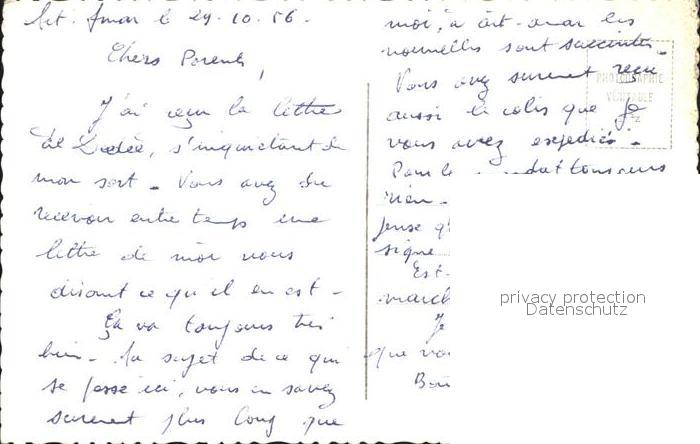 St. Jmar le 29.10.56.
Chers Parents,
J'ai reçu la lettre
de Dédée, s'inquiétant de
mon sort - Vous avez du
recevoir entre temps une
lettre de moi vous
disant ce qu'il en est -
Ça va toujours très
bien - Au sujet de ce qui
se passe ici, vous en savez
surement plus long que
moi, à cet - les
nouvelles sont succintes -
Vous avez surement reçu
aussi le colis que je
vous avez expédiés -
Pour le
rien -
signe
Est-
march
Je
que vo
Bon
PHOTOGRAPHIE
VÉRITABLE
privacy protection
Datenschutz